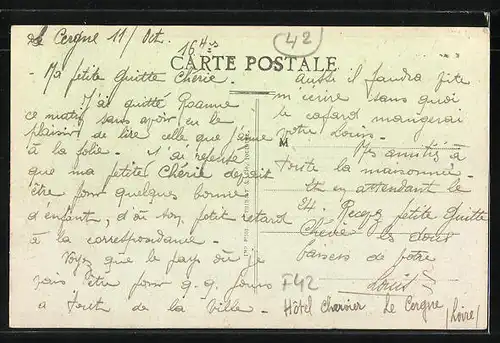 Le Cergne 11/ Oct. 16 Hs
42
CARTE POSTALE
- Ma petite Guitte Chérie.
J'ai quitté Roanne
ce matin sans avoir eu le
plaisir de lire celle que j'aime
à la folie. - J'ai
que ma petite Chérie
être pour quelques bonne
d'enfant, d'où son petit retard
à la correspondance. -
Voyez que le pays où je
vais être pour q.q. jours
a tout de la Ville. -
Aussi il faudra vite
m'écrire sans quoi
le cafard mangerai
votre Louis. -
M
Mes amitiés à
toute la maisonnée. -
Et en attendant le
24. Recevez petite Guitte
Chérie les doux
baisers de votre
Louis
F42
Hôtel Charvier Le Cergne
(Loire)